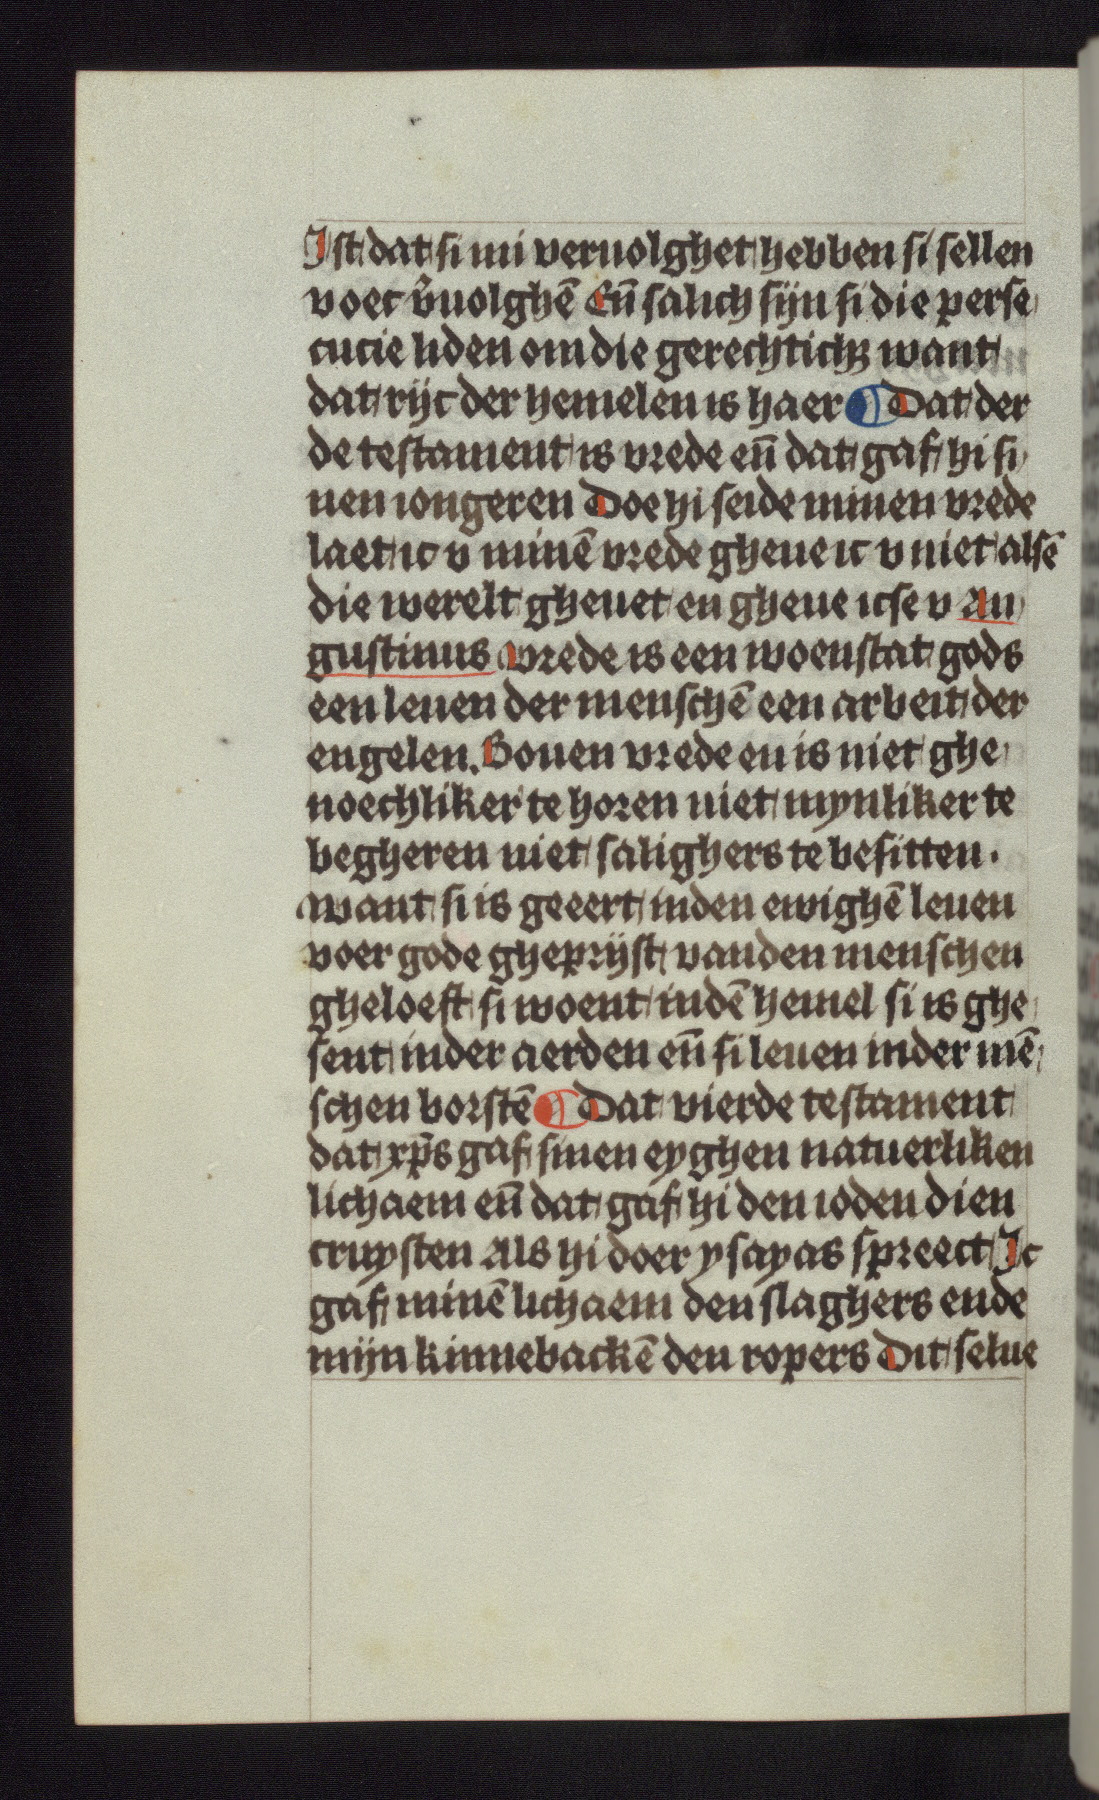 Ist dat si mi veruolghet hebben si sellen
v oec v̄uolghē Eñ salich sijn si die perse
cucie liden om die gerechtichꝫ want
dat rijc der hemelen is haer ¶ Dat der
de testament is vrede eñ dat gaf hi si
nen iongeren Doe hi seide minen vrede
laet ic v minē vrede gheue ic v niet alsē
die werelt gheuet en gheue icse v Au
gustinus Vrede is een woenstat gods
een leuen der menschē een arbeit der
engelen. Bouen vrede en is niet ghe
noechliker te horen niet mynliker te
begheren niet salighers te besitten.
want si is geeert inden ewighē leuen
voer gode gheprijst vanden menschen
gheloeft si woent indē hemel si is ghe
sent inder aerden eñ si leuen inder mē
schen borstē ¶ Dat vierde testament
dat xp̄s gaf sinen eyghen natuerliken
lichaem eñ dat gaf hi den ioden dien
cruysten Als hi doer ysayas spreect Ic
gaf minē lichaem den slaghers ende
mijn kinnebackē den ropers Dit selue